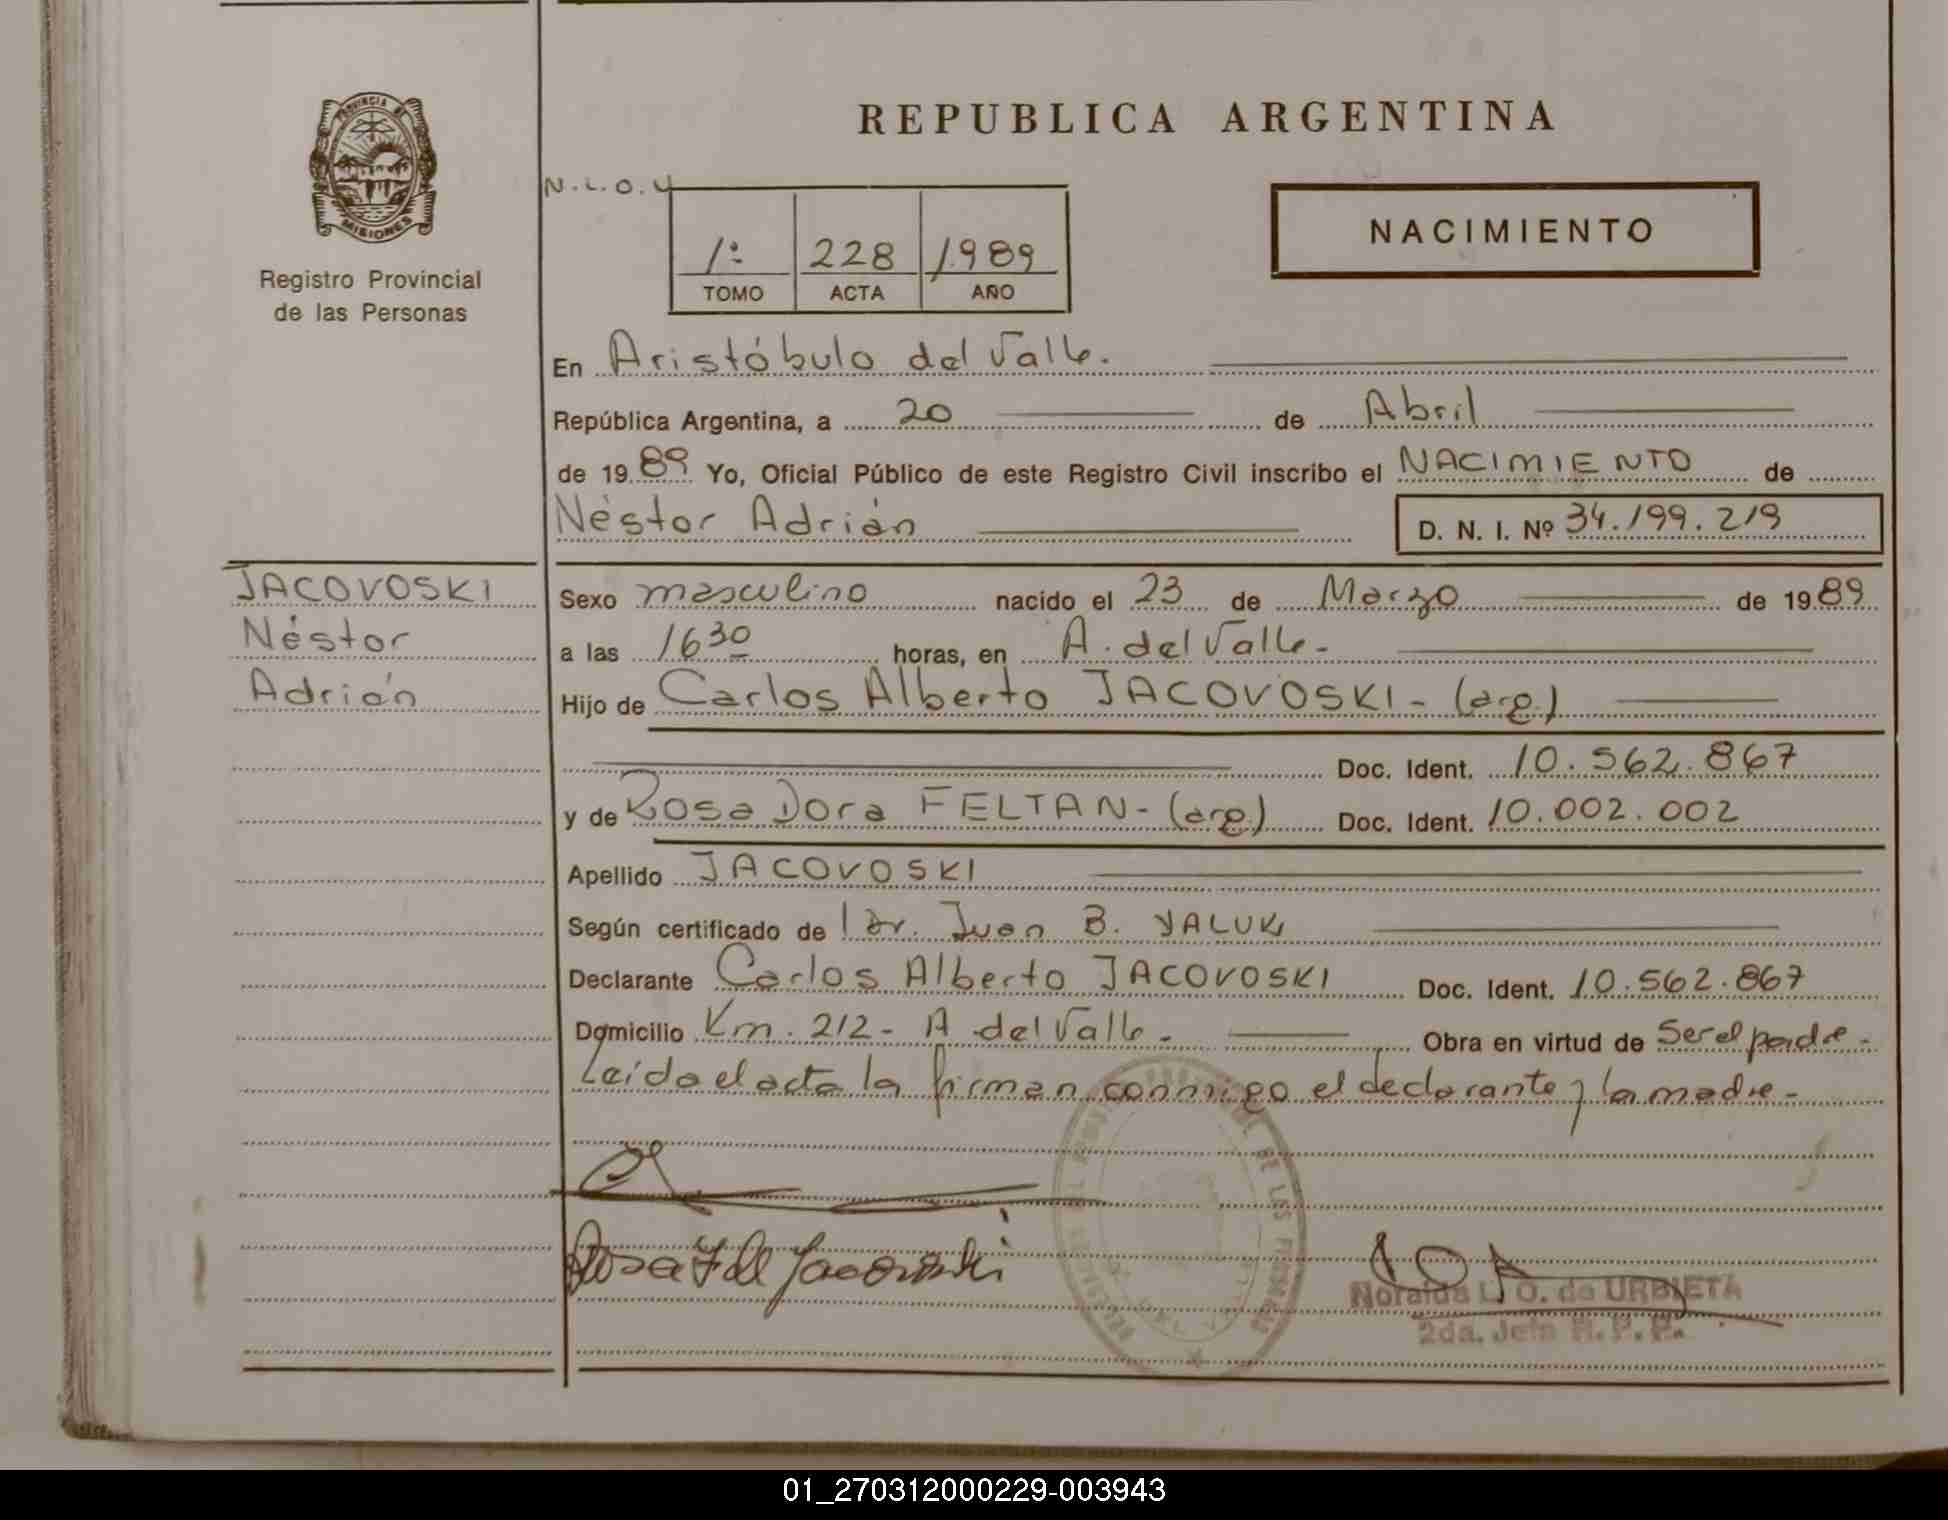 PROVINCIA DE
MISIONES
Registro Provincial
de las Personas
REPUBLICA ARGENTINA
N.L.O.U
NACIMIENTO
1º 228 1989
TOMO ACTA AÑO
En Aristóbulo del Valle.
República Argentina, a 20 de Abril
de 1989 Yo, Oficial Público de este Registro Civil inscribo el NACIMIENTO de
Néstor Adrián D. N. I. Nº 34.199.219
JACOVOSKI
Néstor
Adrián
Sexo masculino nacido el 23 de Marzo de 1989
a las 16 30 horas, en A. del Valle-
Hijo de Carlos Alberto JACOVOSKI - (arg)
Doc. Ident. 10.562.867
y de Rosa Dora FELTAN - (arg) Doc. Ident. 10.002.002
Apellido JACOVOSKI
Según certificado de l Dr. Juan B. YALUK
Declarante Carlos Alberto JACOVOSKI Doc. Ident. 10.562.867
Domicilio Km. 212 - A del Valle - Obra en virtud de Ser el padre -
Leída el acta la firman conmigo el declarante y la madre -
Rosa F de Jacovoski
Noraida L. O. de URBIETA
2da. Jefa R. P. P.
DE LAS PERSONAS
DEL VALLE
01_270312000229-003943